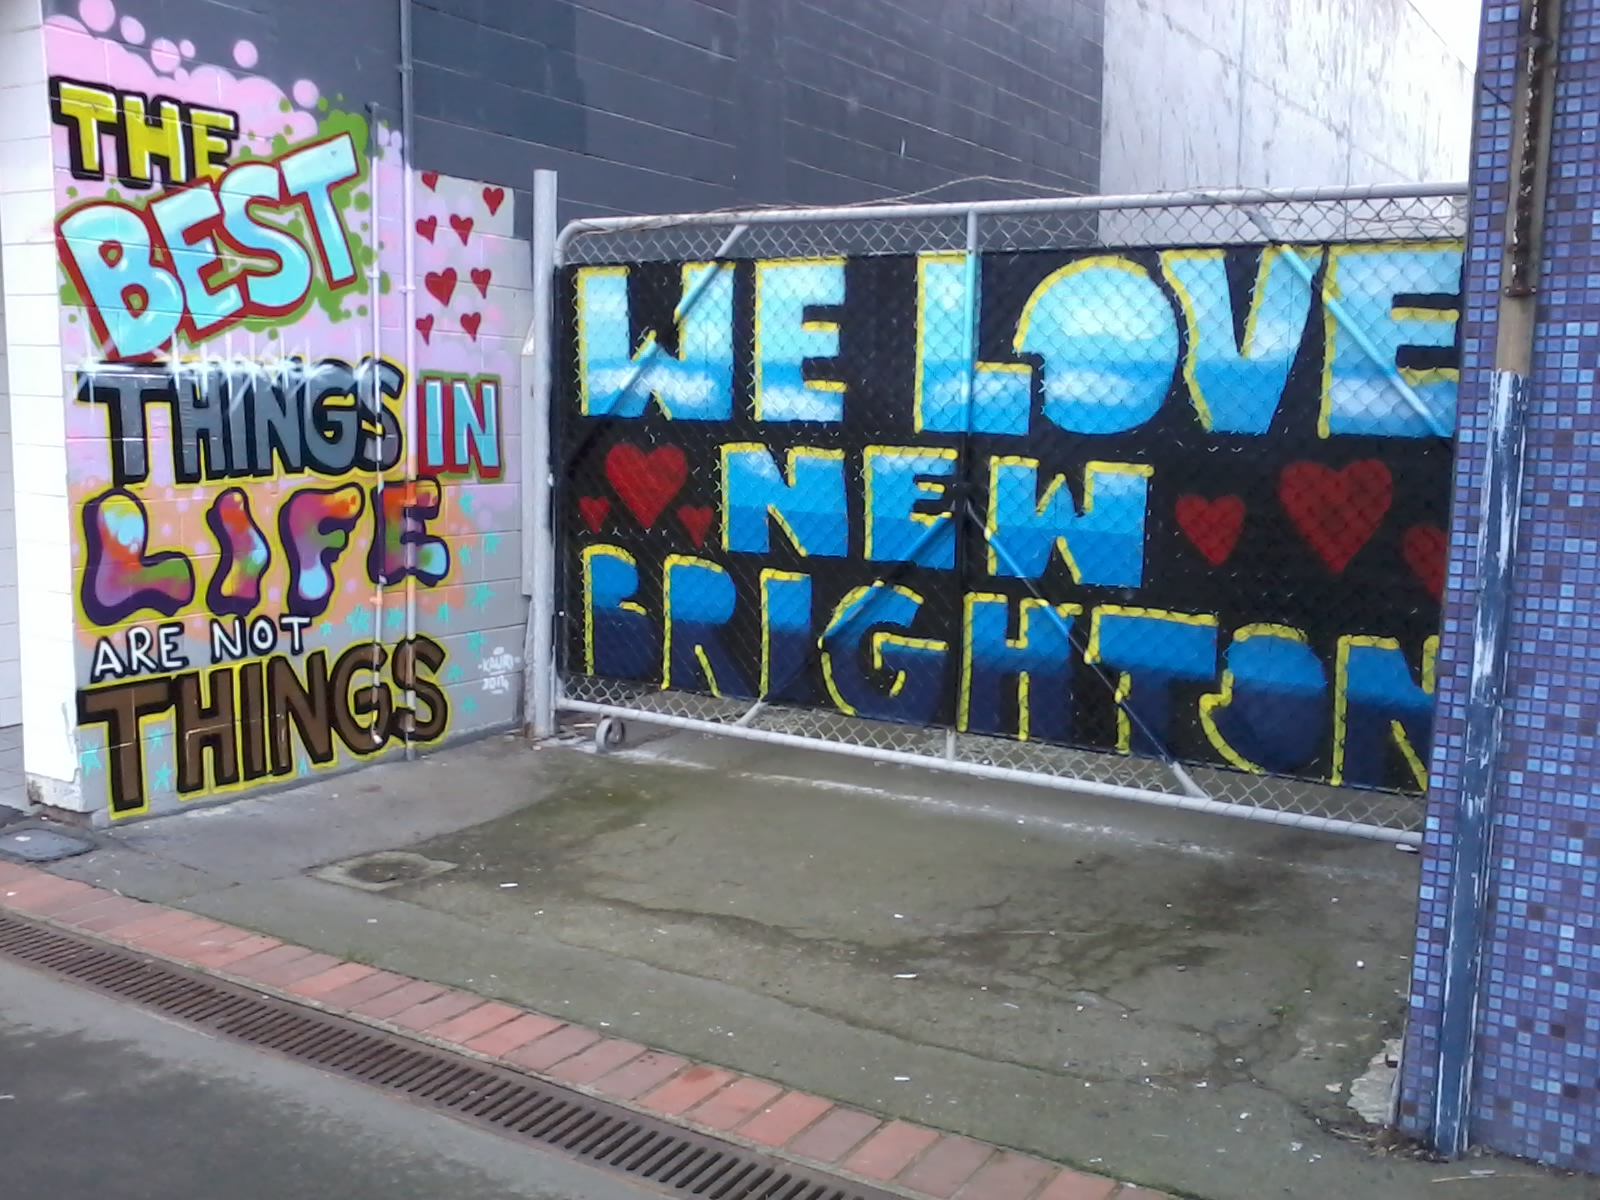 THE
BEST
THINGS IN
LIFE
ARE NOT
THINGS
WE LOVE
NEW
BRIGHTON